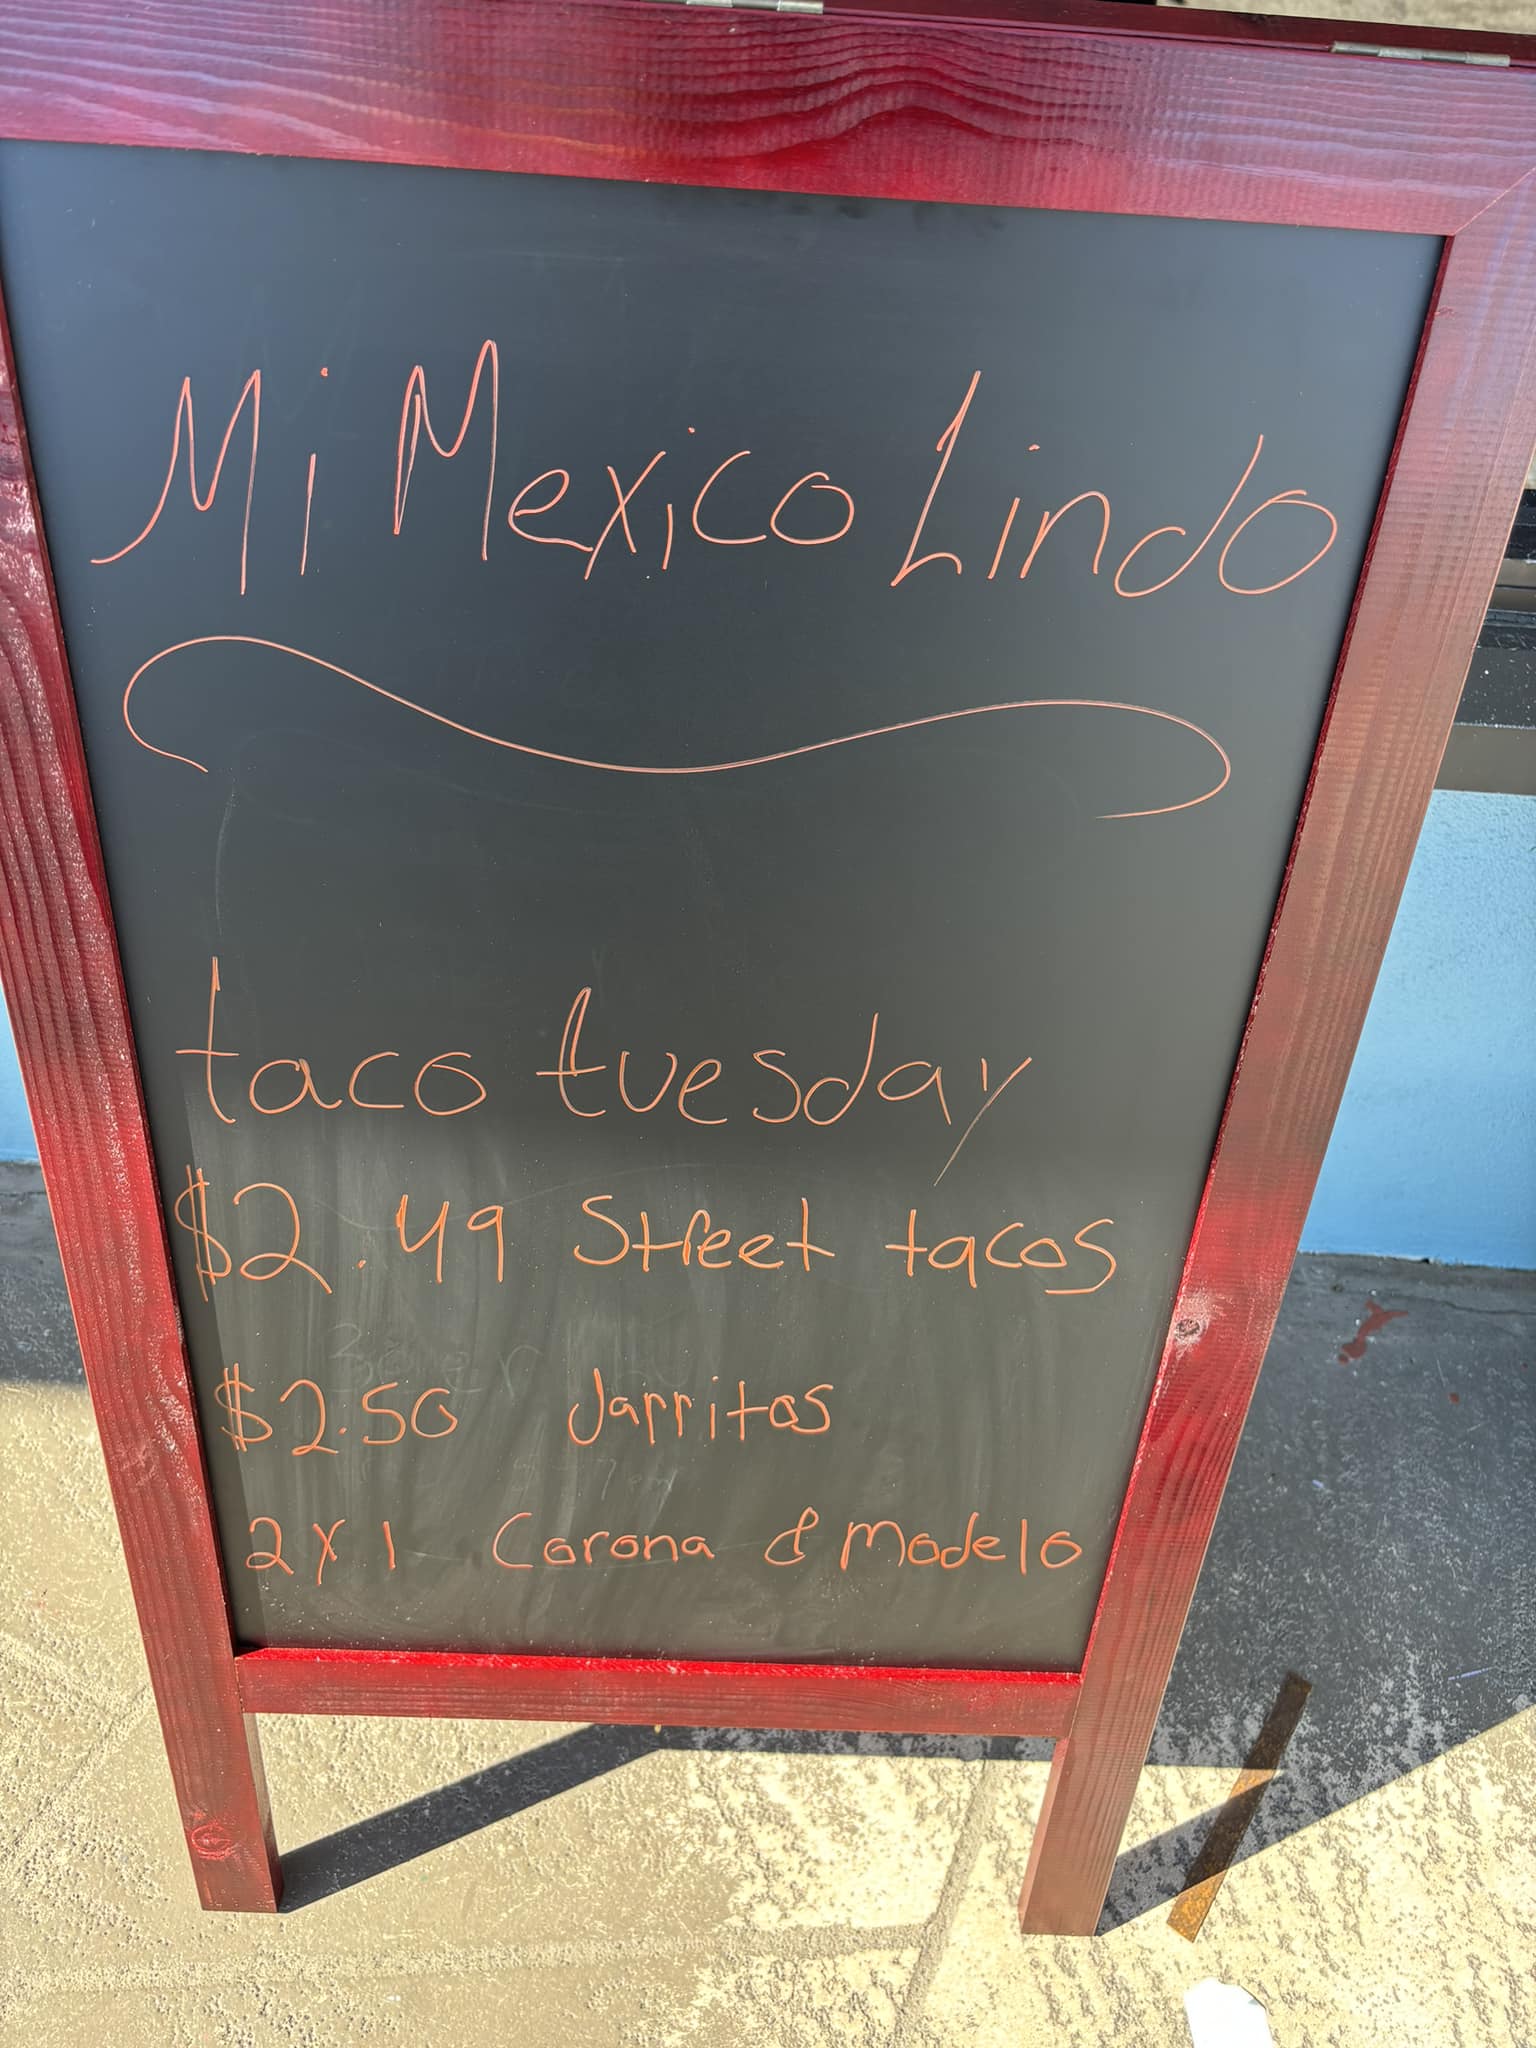 Mi Mexico Lindo
taco tuesday
$2.49 Street tacos
$2.50 Jarritos
2x1 Corona & Modelo